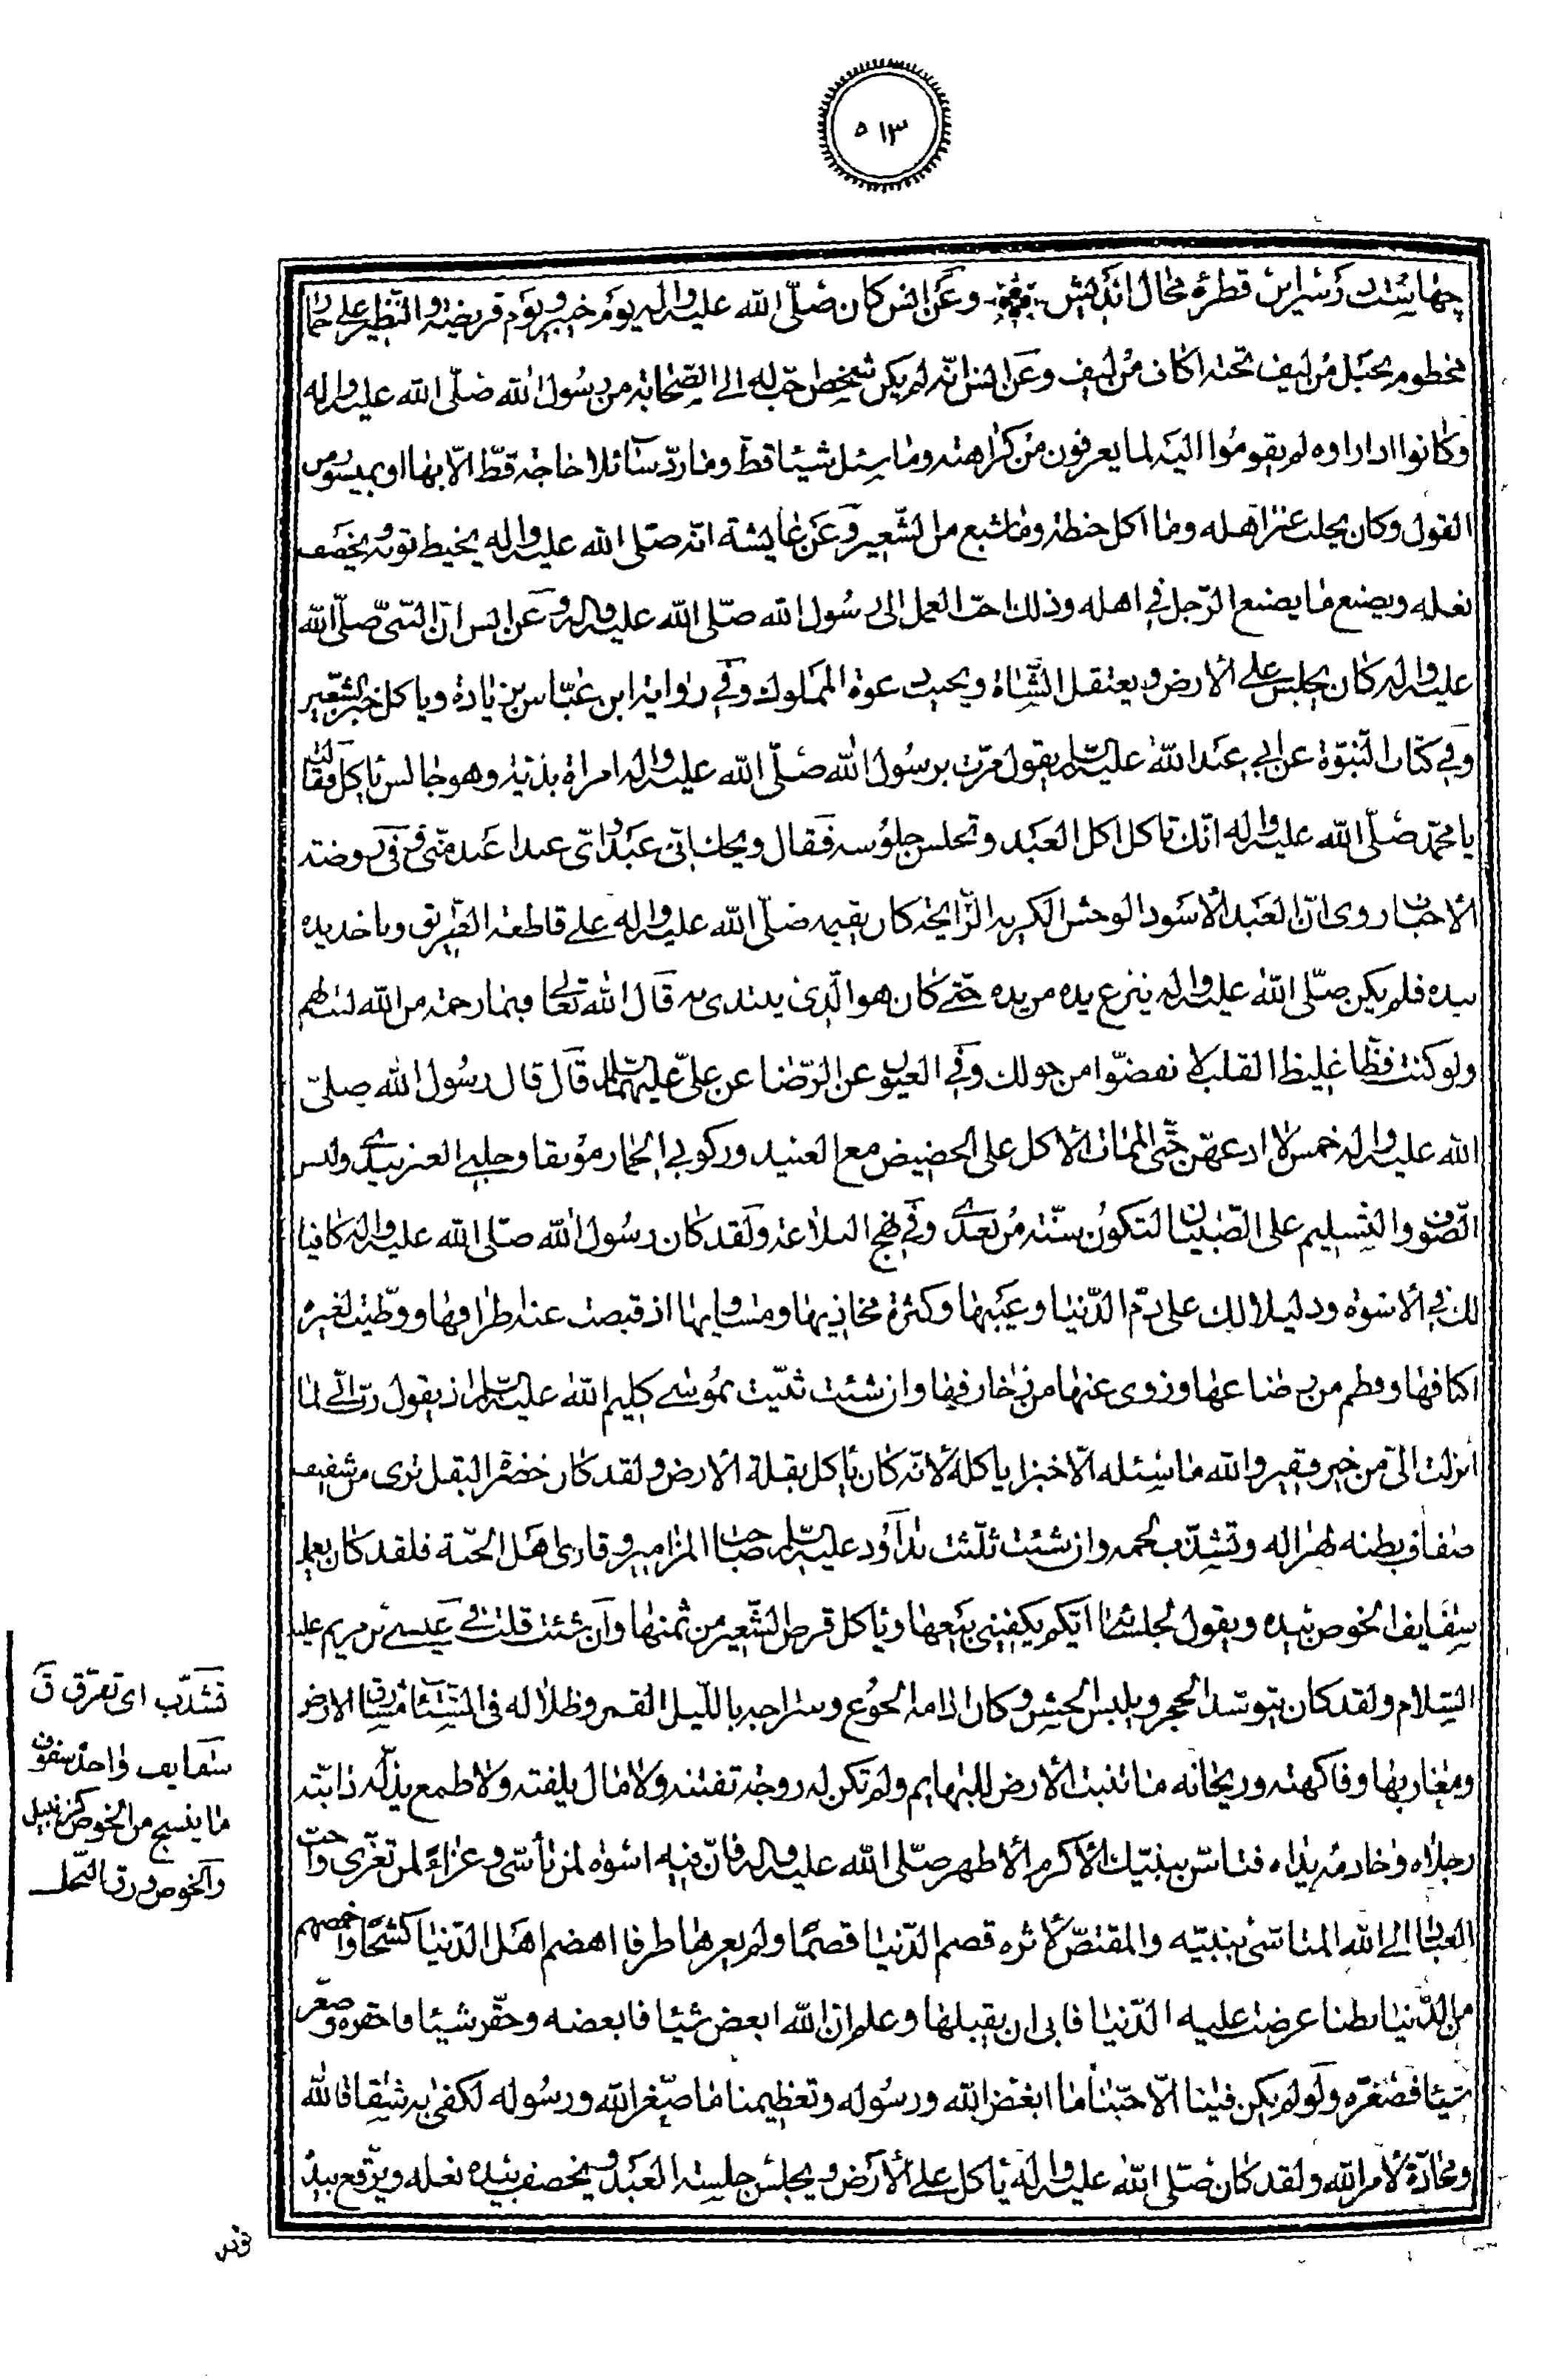 ٥١٣
چهاست در سر این قطرهٔ محال اندیش وعن انس كان صلّى الله عليه واله يوم خيبر ويوم قريضة والنظير على حمار
مخطوم بحبل من ليف تحته اكاف من ليف وعن انس انّه لم يكن شخص احبّ اليهم الصّحابة من رسول الله صلّى الله عليه واله
وكانوا اذا راوه لم يقوموا اليه لما يعرفون من كراهته وما سئل شيئا قطّ وما ردّ سائلا حاجة قطّ الّا بها او بميسور من
القول وكان يحلب عنز اهله وما اكل حنطة وما شبع من الشّعير وعن عايشة انّه صلّى الله عليه واله يخيط ثوبه ويخصف
نعله ويصنع ما يصنع الرّجل في اهله وذلك احبّ العمل الى رسول الله صلّى الله عليه واله وعن انس انّ النبيّ صلّى الله
عليه واله كان يجلس على الأرض ويعتقل الشّاة ويجيب دعوة المملوك وفي رواية ابن عبّاس بزيادة وياكل خبز الشّعير
وفي كتاب النّبوّة عن ابي عبد الله عليه السّلم يقول مرّت برسول الله صلّى الله عليه واله امراة بذيّة وهو جالس ياكل فقالت
يا محمّد صلّى الله عليه واله انّك تاكل اكل العبد وتجلس جلوسه فقال ويحك انّي عبد وايّ عبد اعبد منّي وفي روضة
الأحباب روى انّ العبد الأسود الوحش الكريه الرّايحة كان يقيمه صلّى الله عليه واله على قاطعة الطّريق وياخذ يده
بيده فلم يكن صلّى الله عليه واله ينزع يده من يده حتّى كان هو الّذي يبتدى به قال الله تعالى فبما رحمة من الله لنت لهم
ولو كنت فظّا غليظ القلب لانفضّوا من حولك وفي العيون عن الرّضا عن عليّ عليهما السّلم قال قال رسول الله صلّى
الله عليه واله خمس لا ادعهنّ حتّى الممات الأكل على الحضيض مع العبيد وركوبي الحمار مؤكفا وحلبي العنز بيدي ولبس
الصّوف والتّسليم على الصّبيان لتكون سنّة من بعدي وفي نهج البلاغة ولقد كان رسول الله صلّى الله عليه واله كافيا
لك في الأسوة ودليلا لك على ذمّ الدّنيا وعيبها وكثرة مخاذيها ومساويها اذ قبضت عنه اطرافها ووطّيت لغيره
اكنافها وفطم من رضاعها وزوى عنها من زخارفها وان شئت ثنّيت بموسى كليم الله عليه السّلم اذ يقول ربّ انّي لما
انزلت اليّ من خير فقير والله ما سئله الّا خبزا ياكله لانّه كان ياكل بقلة الأرض ولقد كان خضرة البقل ترى من شفيف
صفاق بطنه لهزاله وتشذّب لحمه وان شئت ثلّثت بداود عليه السّلم صاحب المزامير وقارى اهل الجنّة فلقد كان يعمل
سفايف الخوص بيده ويقول لجلسائه ايّكم يكفيني بيعها وياكل قرص الشّعير من ثمنها وان شئت قلت في عيسى بن مريم عليه
السّلام ولقد كان يتوسّد الحجر ويلبس الخشن وكان ادامه الجوع وسراجه باللّيل القمر وظلاله في الشّتاء مشارق الارض
ومغاربها وفاكهته وريحانه ما تنبت الأرض للبهايم ولم تكن له زوجة تفتنه ولا مال يلفته ولا طمع يذلّه دابّته
رجلاه وخادمه يداه فتاسّ بنبيّك الأكرم الأطهر صلّى الله عليه واله فانّ فيه اسوة لمن تأسّى وعزاء لمن تعزّى واحبّ
العباد الى الله المتاسّي بنبيّه والمقتصّ لأثره قصم الدّنيا قصما ولم يعرها طرفا اهضم اهل الدّنيا كشحا واخمصهم
من الدّنيا بطنا عرضت عليه الدّنيا فابى ان يقبلها وعلم انّ الله ابغض شيئا فابغضه وحقّر شيئا فاحقره وصغّر
شيئا فصغّره ولو لم يكن فينا الّا حبّنا ما ابغض الله ورسوله وتعظيمنا ما صغّر الله ورسوله لكفى به شقاقا لله
ومحادّة لأمر الله ولقد كان صلّى الله عليه واله ياكل على الأرض ويجلس جلسة العبد ويخصف بيده نعله ويرقع بيده
ثوبه
تشذّب اى تفرّق ق
سفايف واحد سفوف
ما ينسج من الخوص كزنبيل
والخوص ورق النّخل